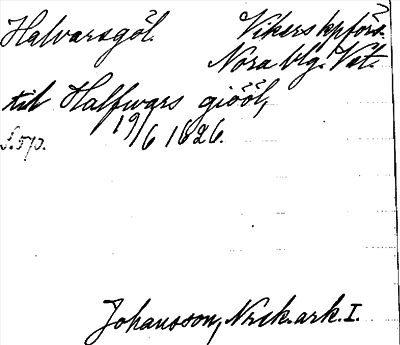 Halvarsgöl. Vikers kpförs.
Nora blg. Vst.
til Halfwars giööl,
19/6 1626.
Johansson, Närk. ark. I.